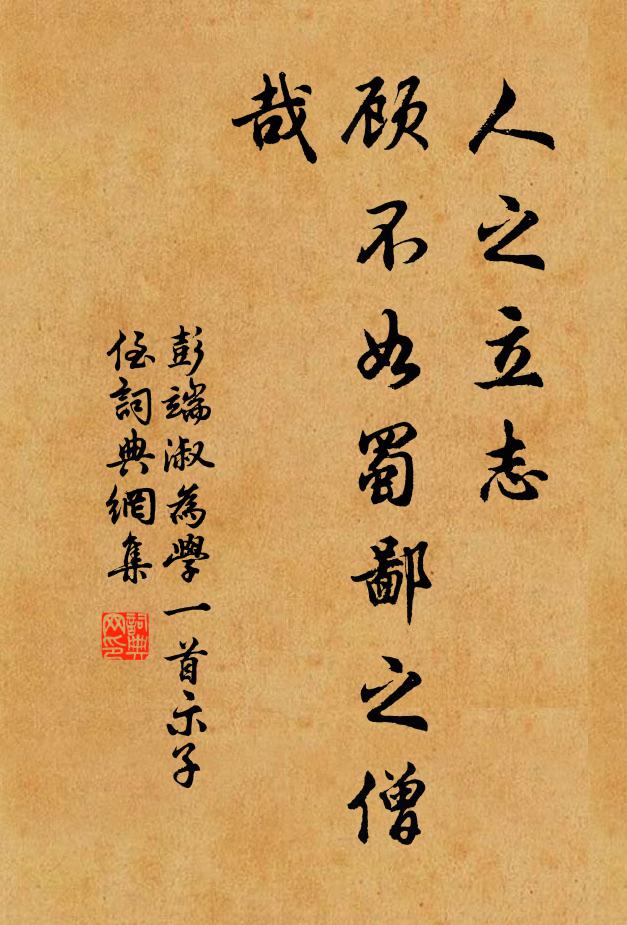 人之立志
顾不如蜀鄙之僧
哉
彭端淑為學一首示子
侄詞典網集
詞典网印